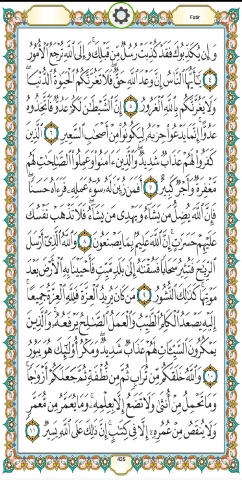 Fatir
وَإِن يُكَذِّبُوكَ فَقَدْ كُذِّبَتْ رُسُلٌ مِّن قَبْلِكَ وَإِلَى ٱللَّهِ تُرْجَعُ ٱلْأُمُورُ
٤ يَٰٓأَيُّهَا ٱلنَّاسُ إِنَّ وَعْدَ ٱللَّهِ حَقٌّ فَلَا تَغُرَّنَّكُمُ ٱلْحَيَوٰةُ ٱلدُّنْيَا
وَلَا يَغُرَّنَّكُم بِٱللَّهِ ٱلْغَرُورُ ٥ إِنَّ ٱلشَّيْطَٰنَ لَكُمْ عَدُوٌّ فَٱتَّخِذُوهُ
عَدُوًّا إِنَّمَا يَدْعُوا۟ حِزْبَهُۥ لِيَكُونُوا۟ مِنْ أَصْحَٰبِ ٱلسَّعِيرِ ٦ ٱلَّذِينَ
كَفَرُوا۟ لَهُمْ عَذَابٌ شَدِيدٌ وَٱلَّذِينَ ءَامَنُوا۟ وَعَمِلُوا۟ ٱلصَّٰلِحَٰتِ لَهُم
مَّغْفِرَةٌ وَأَجْرٌ كَبِيرٌ ٧ أَفَمَن زُيِّنَ لَهُۥ سُوٓءُ عَمَلِهِۦ فَرَءَاهُ حَسَنًا
فَإِنَّ ٱللَّهَ يُضِلُّ مَن يَشَآءُ وَيَهْدِى مَن يَشَآءُ فَلَا تَذْهَبْ نَفْسُكَ
عَلَيْهِمْ حَسَرَٰتٍ إِنَّ ٱللَّهَ عَلِيمٌۢ بِمَا يَصْنَعُونَ ٨ وَٱللَّهُ ٱلَّذِىٓ أَرْسَلَ
ٱلرِّيَٰحَ فَتُثِيرُ سَحَابًا فَسُقْنَٰهُ إِلَىٰ بَلَدٍ مَّيِّتٍ فَأَحْيَيْنَا بِهِ ٱلْأَرْضَ بَعْدَ
مَوْتِهَا كَذَٰلِكَ ٱلنُّشُورُ ٩ مَن كَانَ يُرِيدُ ٱلْعِزَّةَ فَلِلَّهِ ٱلْعِزَّةُ جَمِيعًا
إِلَيْهِ يَصْعَدُ ٱلْكَلِمُ ٱلطَّيِّبُ وَٱلْعَمَلُ ٱلصَّٰلِحُ يَرْفَعُهُۥ وَٱلَّذِينَ
يَمْكُرُونَ ٱلسَّيِّـَٔاتِ لَهُمْ عَذَابٌ شَدِيدٌ وَمَكْرُ أُو۟لَٰٓئِكَ هُوَ يَبُورُ
١٠ وَٱللَّهُ خَلَقَكُم مِّن تُرَابٍ ثُمَّ مِن نُّطْفَةٍ ثُمَّ جَعَلَكُمْ أَزْوَٰجًا
وَمَا تَحْمِلُ مِنْ أُنثَىٰ وَلَا تَضَعُ إِلَّا بِعِلْمِهِۦ وَمَا يُعَمَّرُ مِن مُّعَمَّرٍ
وَلَا يُنقَصُ مِنْ عُمُرِهِۦٓ إِلَّا فِى كِتَٰبٍ إِنَّ ذَٰلِكَ عَلَى ٱللَّهِ يَسِيرٌ ١١
435